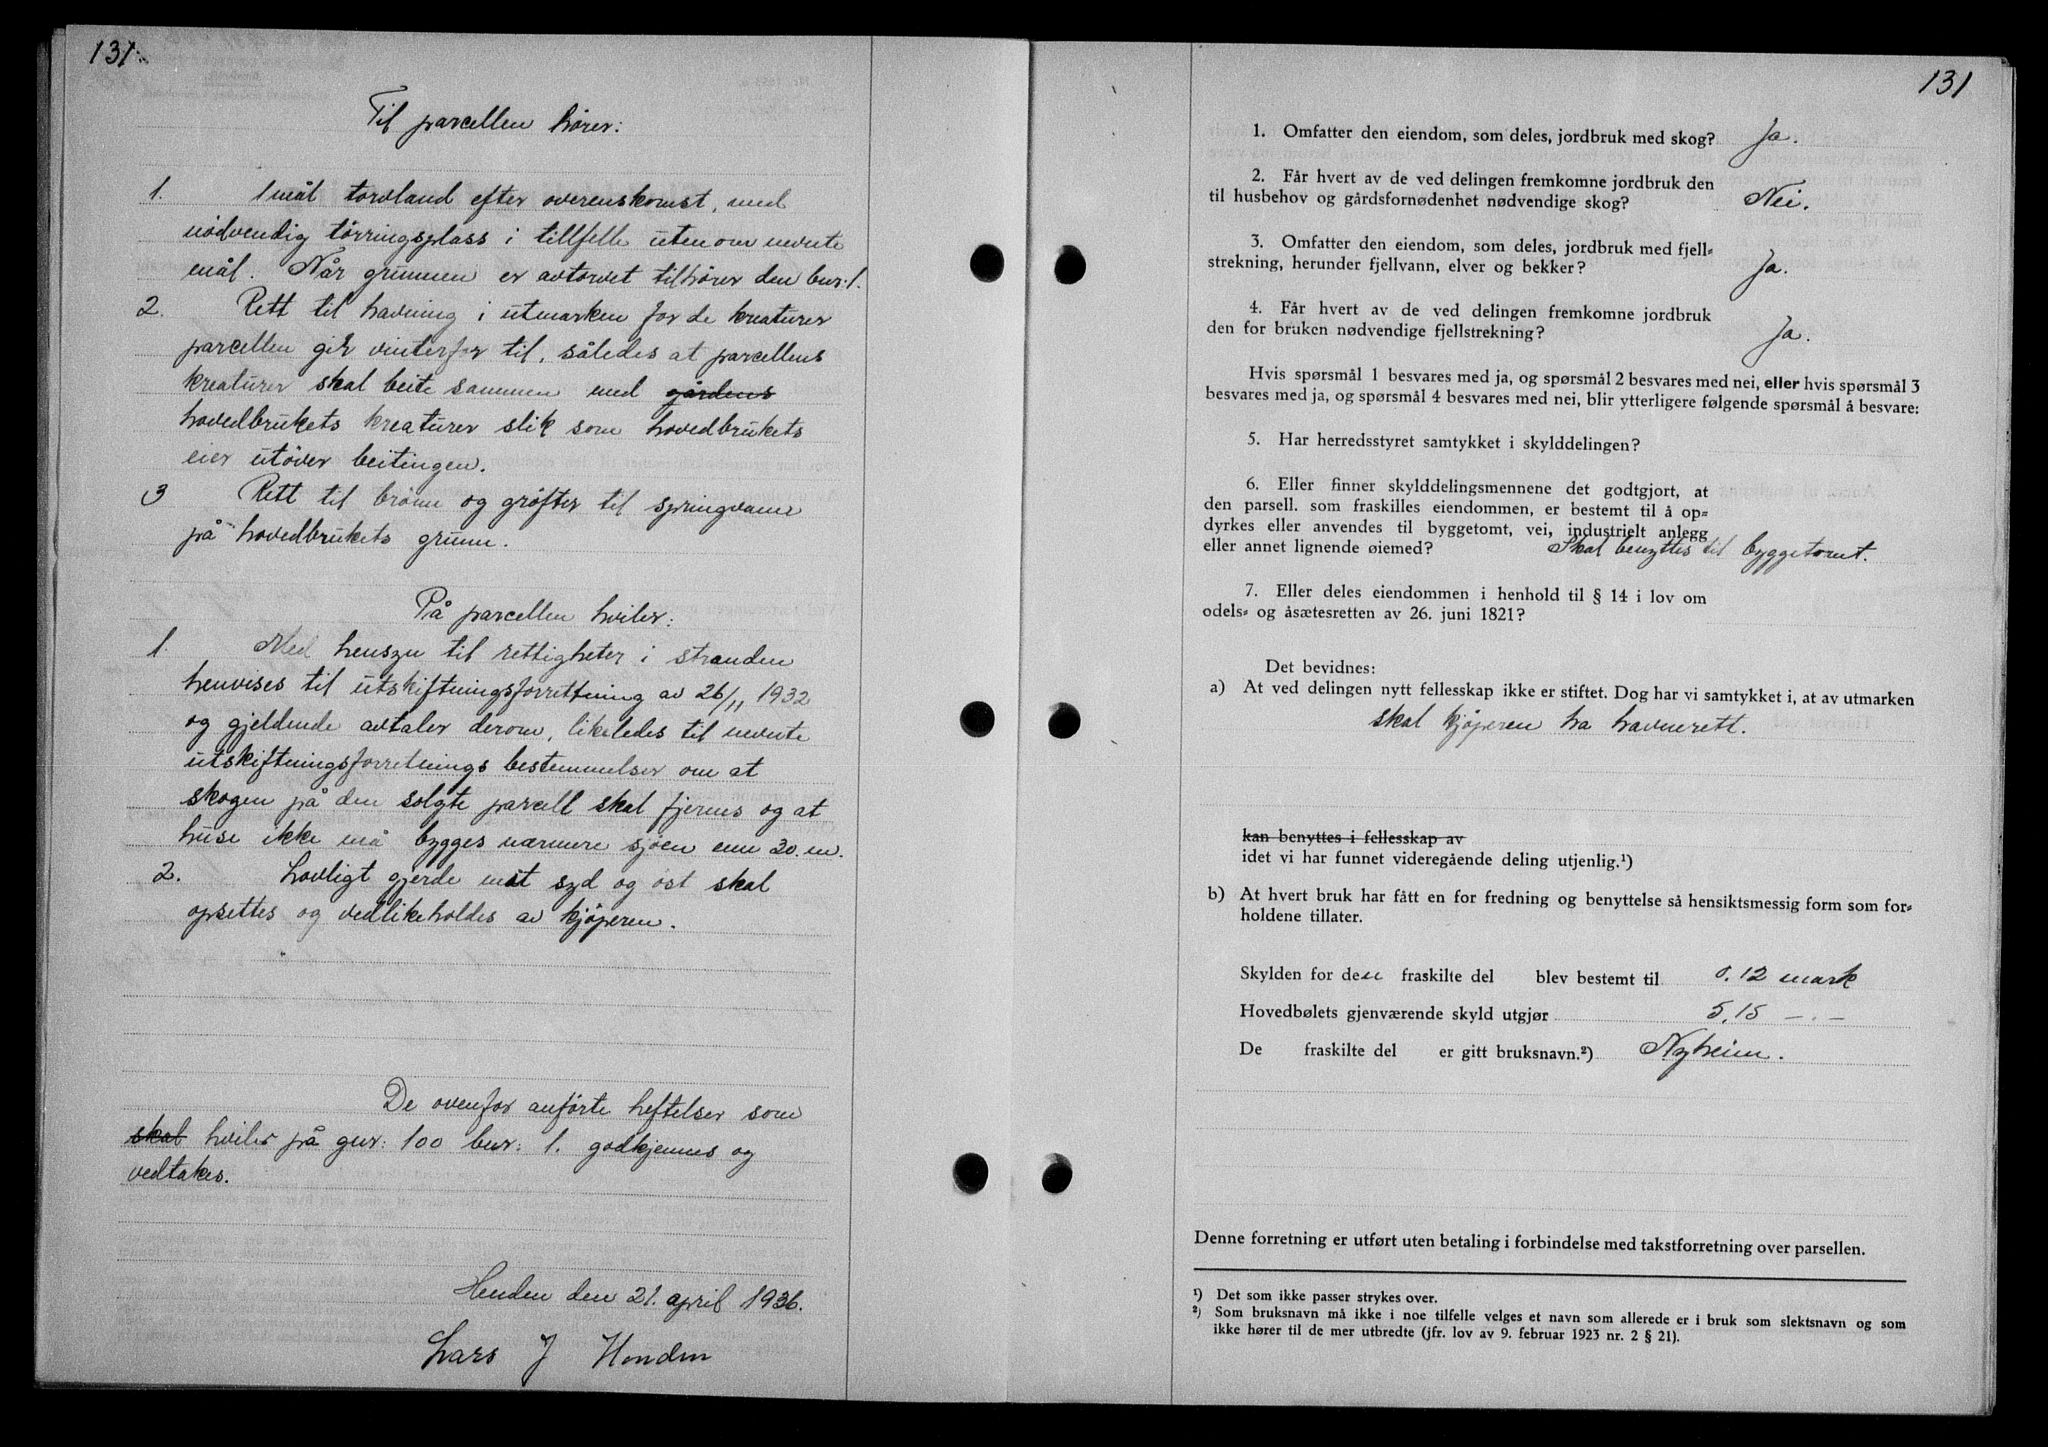 131.
Til parcellen hører:
1. 1 mål torvland efter overenskomst, med
nödvendig törringsplass i tillfelle uten om nevnte
mål. Når grunnen er avtorvet tilhører den bur. 1.
2. Rett til havning i utmarken for de kreaturer
parcellen gir vinterfor til, således at parcellens
kreaturer skal beite sammen med gårdens
hovedbrukets kreaturer slik som hovedbrukets
eier utöver beitingen.
3 Rett til brönn og gröfter til springvann
på hovedbrukets grunn.
På parcellen hviler:
1. Med hensyn til rettigheter i stranden
henvises til utskiftningsforrettning av 26/11 1932
og gjeldende avtaler derom, likeledes til nevnte
utskiftningsforretnings bestemmelser om at
skogen på den solgte parcell skal fjernes og at
huse ikke må bygges nærmere sjöen enn 30. m.
2. Lovligt gjerde mot syd og öst skal
opsettes og vedlikeholdes av kjöperen.
De ovenfor anførte heftelser som
skal hviler på gnr: 100 bnr: 1. godkjennes og
vedtakes.
Henden den 21. april 1936.
Lars J Henden
131
1. Omfatter den eiendom, som deles, jordbruk med skog? Ja.
2. Får hvert av de ved delingen fremkomne jordbruk den
til husbehov og gårdsfornødenhet nødvendige skog? Nei.
3. Omfatter den eiendom, som deles, jordbruk med fjell=
strekning, herunder fjellvann, elver og bekker? Ja.
4. Får hvert av de ved delingen fremkomne jordbruk
den for bruken nødvendige fjellstrekning? Ja.
Hvis spørsmål 1 besvares med ja, og spørsmål 2 besvares med nei, eller hvis spørsmål 3
besvares med ja, og spørsmål 4 besvares med nei, blir ytterligere følgende spørsmål å besvare:
5. Har herredsstyret samtykket i skylddelingen?
6. Eller finner skylddelingsmennene det godtgjort, at
den parsell. som fraskilles eiendommen, er bestemt til å op=
dyrkes eller anvendes til byggetomt, vei, industrielt anlegg
eller annet lignende øiemed? Skal benyttes til byggetomt.
7. Eller deles eiendommen i henhold til § 14 i lov om
odels= og åsætesretten av 26. juni 1821?
Det bevidnes:
a) At ved delingen nytt fellesskap ikke er stiftet. Dog har vi samtykket i, at av utmarken
skal kjöperen ha havnerett.
kan benyttes i fellesskap av
idet vi har funnet videregående deling utjenlig.¹)
b) At hvert bruk har fått en for fredning og benyttelse så hensiktsmessig form som for=
holdene tillater.
Skylden for den fraskilte del blev bestemt til 0.12 mark
Hovedbølets gjenværende skyld utgjør 5,15 -.-
De fraskilte del er gitt bruksnavn.²) Nyheim.
Denne forretning er utført uten betaling i forbindelse med takstforretning over parsellen.
¹) Det som ikke passer strykes over.
²) Som bruksnavn må ikke i noe tilfelle velges et navn som allerede er i bruk som slektsnavn og som
ikke hører til de mer utbredte (jfr. lov av 9. februar 1923 nr. 2 § 21).